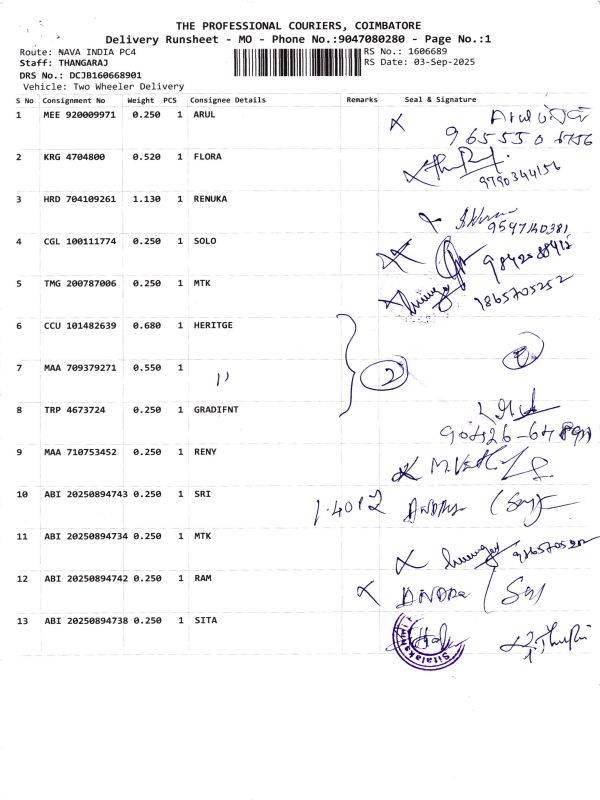 THE PROFESSIONAL COURIERS, COIMBATORE
Delivery Runsheet - MO - Phone No.:9047080280 - Page No.:1
Route: NAVA INDIA PC4 RS No.: 1606689
Staff: THANGARAJ RS Date: 03-Sep-2025
DRS No.: DCJB160668901
Vehicle: Two Wheeler Delivery
S No Consignment No Weight PCS Consignee Details Remarks Seal & Signature
1 MEE 920009971 0.250 1 ARUL Arul
2 KRG 4704800 0.520 1 FLORA
9790344156
3 HRD 704109261 1.130 1 RENUKA
9547140381
4 CGL 100111774 0.250 1 SOLO
5 TMG 200787006 0.250 1 MTK
6 CCU 101482639 0.680 1 HERITGE
7 MAA 709379271 0.550 1 11 2
8 TRP 4673724 0.250 1 GRADIFNT
9 MAA 710753452 0.250 1 RENY
10 ABI 20250894743 0.250 1 SRI
11 ABI 20250894734 0.250 1 MTK
12 ABI 20250894742 0.250 1 RAM
13 ABI 20250894738 0.250 1 SITA